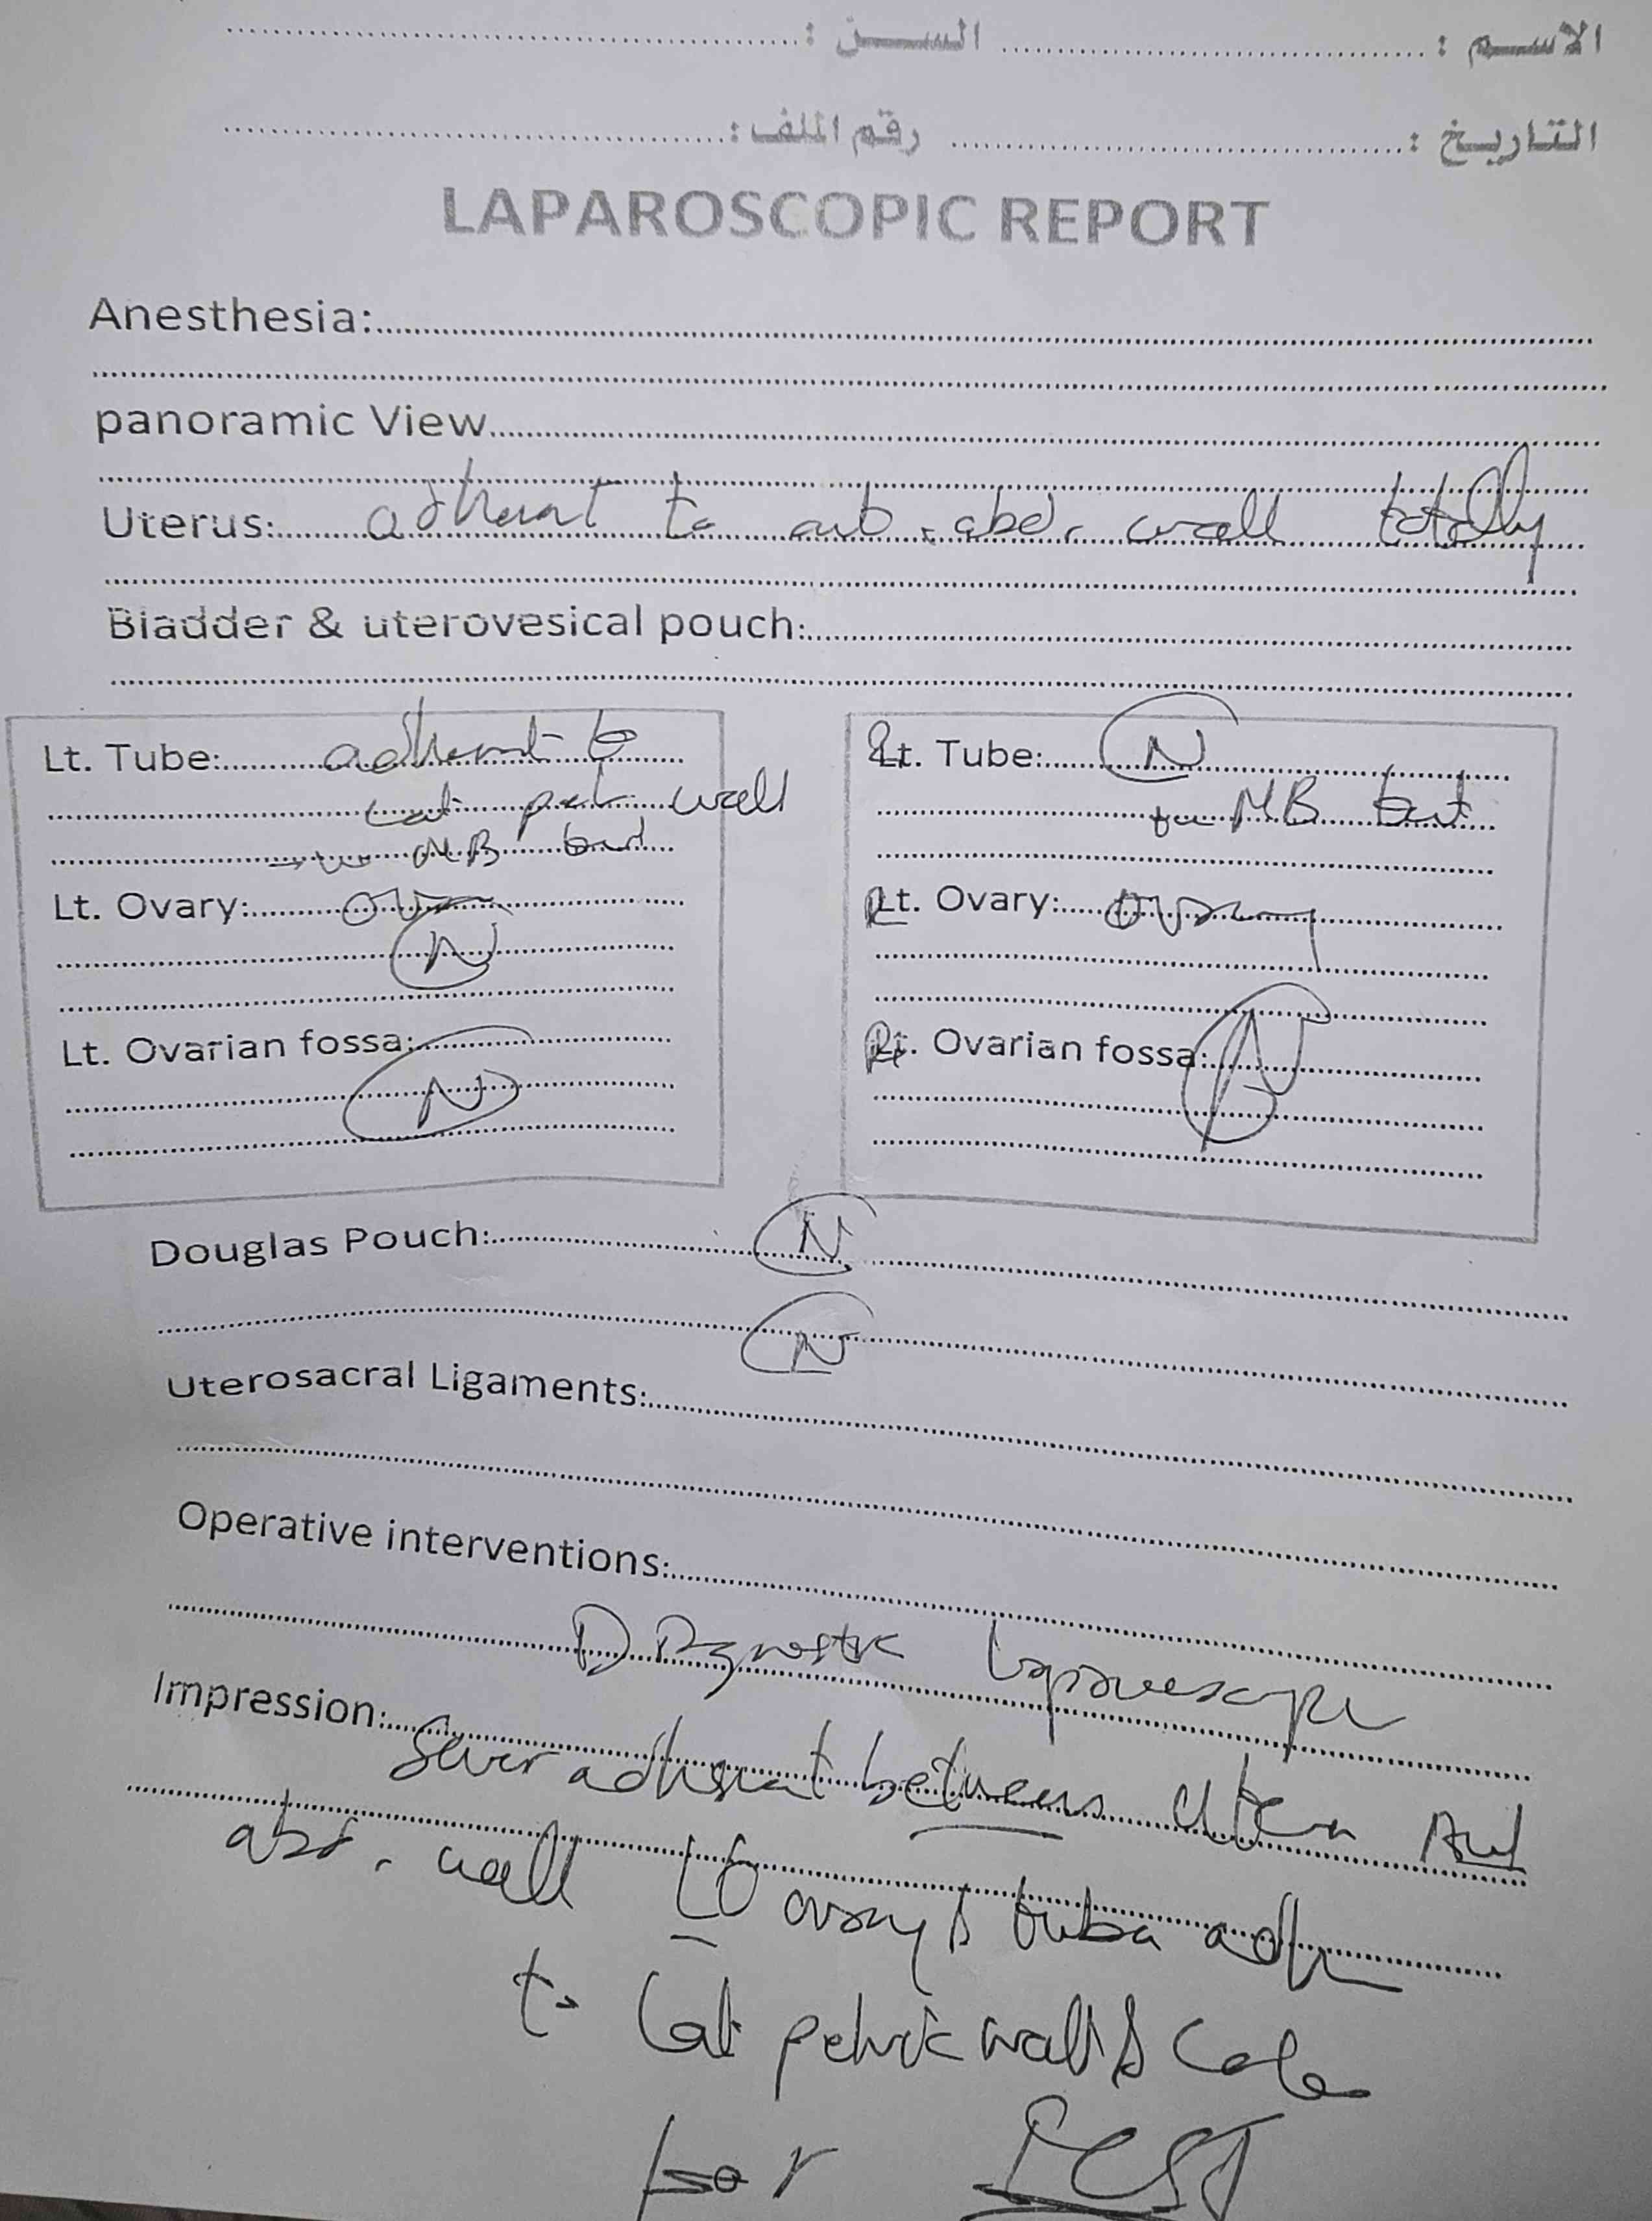 الاسم : السن :
التاريخ : رقم الملف :
LAPAROSCOPIC REPORT
Anesthesia:
panoramic View
Uterus: adherent to ant. abd. wall totally
Bladder & uterovesical pouch:
Lt. Tube: adherent to
Lat. pel. wall
MB but
Lt. Ovary:
N
Lt. Ovarian fossa:
N
Rt. Tube: N
MB but
Rt. Ovary: ovary
Rt. Ovarian fossa: N
Douglas Pouch: N
N
Uterosacral Ligaments:
Operative interventions:
Diagnostic laparoscope
Impression:
Sever adherent between uterus And
abd. wall Lt ovary & tube adh
to Lat pelvic wall &
for ICSI